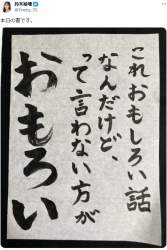 鈴木結場
本日の書です。
これおもしろい話
なんだけど、
って言わない方が
おもろい